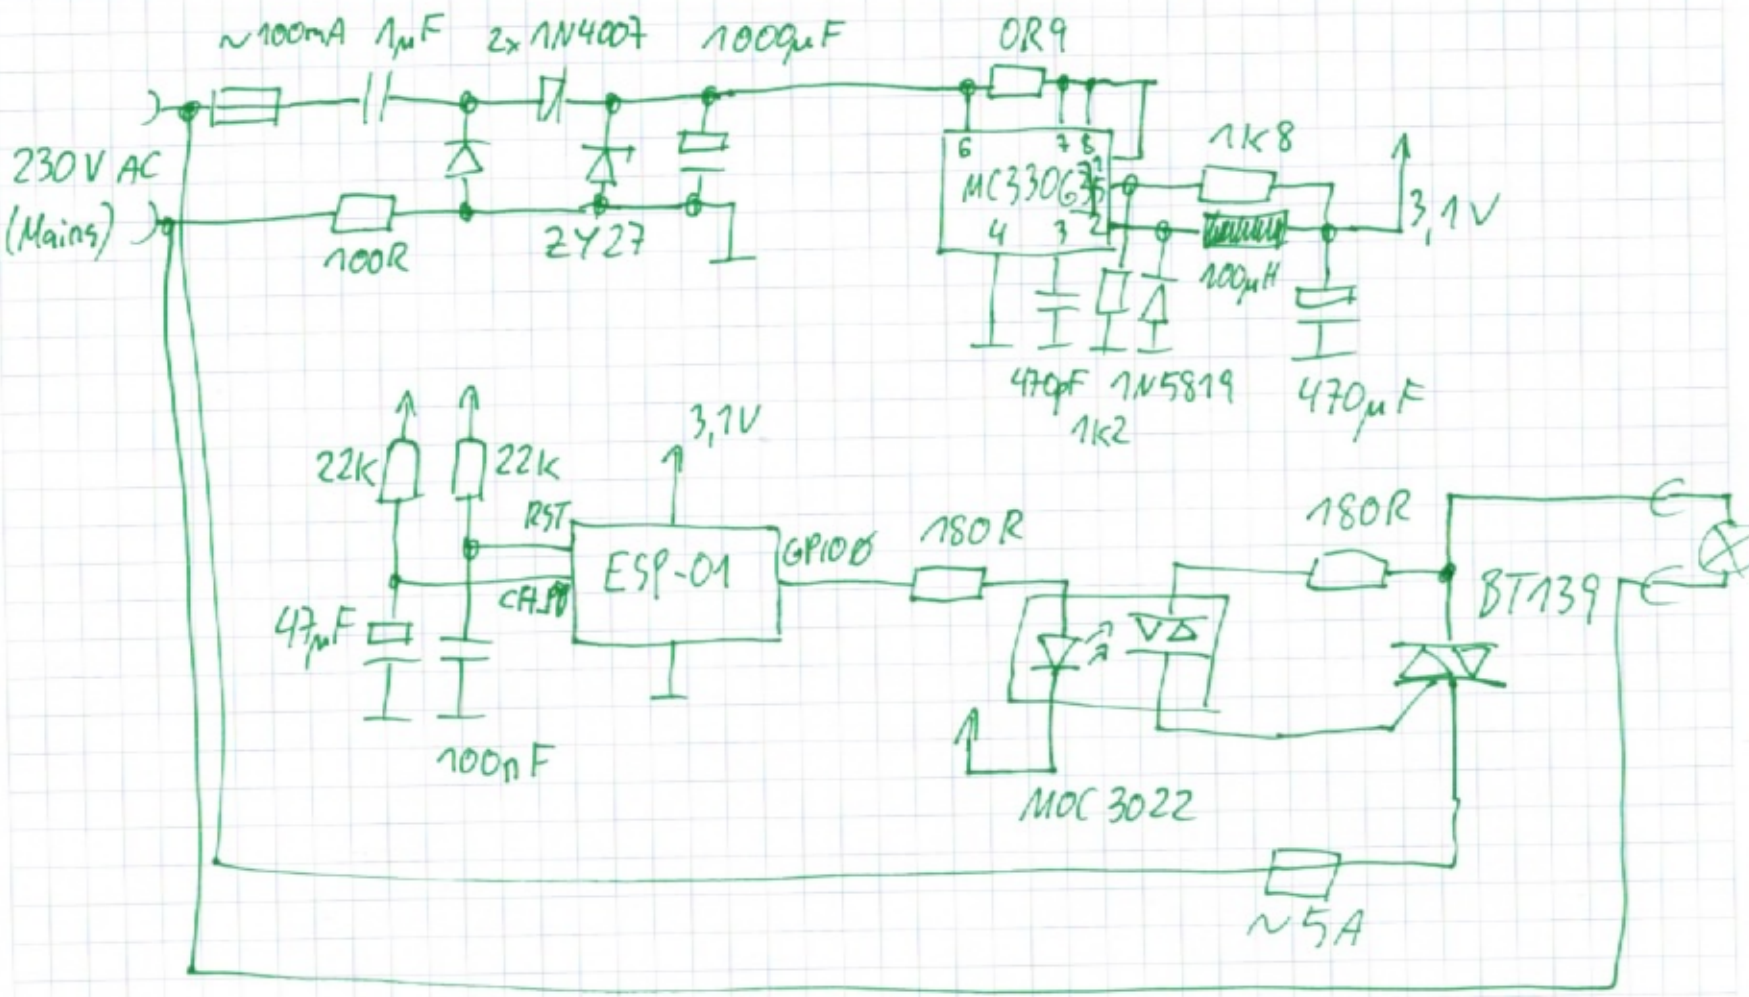 ~100mA 1µF 2x 1N4007 1000µF 0R9
230V AC
(Mains)
100R ZY27
6 7 8 1
MC33063 5
4 3 2
1K8
3,1V
100µH
470pF 1N5819 470µF
1K2
3,1V
22K 22K
RST
ESP-01 GPIO0 180R 180R
CH_PD
47µF
BT139
100nF
MOC3022
~5A